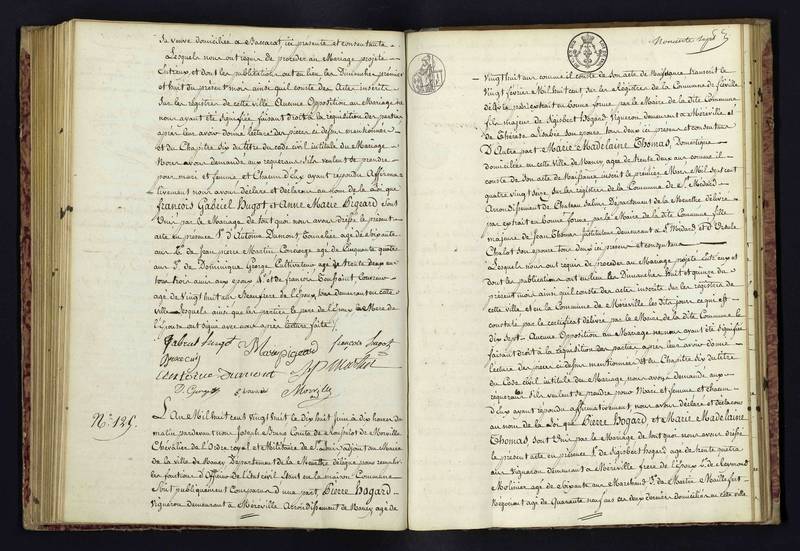 Sa veuve domiciliée à Baccarat ici présente et consentante
Lesquels nous ont requis de procéder au Mariage projetté
Entreux et dont les publications ont eu lieu les Dimanches premier
et huit du présent mois ainsi qu'il conste des Actes inscrits
Sur les registres de cette ville Aucune Opposition au Mariage ne
nous ayant été Signifiée faisant droit à la réquisition des parties
après leur avoir donné lecture des pièces ci dessus mentionnées
et du Chapitre Six du titre du code civil intitulé du Mariage
Nous avons demandé aux requérans s'ils veulent se prendre
pour mari et femme et Chacun d'eux ayant répondu Affirma
tivement nous avons déclaré et déclarons au nom de la Loi que
françois Gabriel Hugot et Anne Marie Pigeard Sont
Unis par le Mariage de tout quoi nous avons dressé le présent
acte en présence Sr d'Antoine Dumont Tonnelier agé de Soixante
ans Sr de Jean pierre Martin Concierge agé de Cinquante quatre
ans Sr de Dominique George Cultivateur agé de trente deux ans
tous trois amis aux époux Sr et de françois Toussaint
age de Vingt huit ans beaufrere de l'époux tous demeurant en cette
ville lesquels ainsi que les parties le père de l'époux la Mère de
l'épouse ont signé avec nous après lecture faite
Gabriel hugot M a m pigeard françois hugot
antoine Dumont JP Martin
D. George Morville
No. 125.
L'An Mil huit cent Vingt huit le dix huit Juin à dix heures du
matin pardevant nous Joseph Bruno Comte de Morville
Chevalier de l'Ordre royal et Militaire de St Louis adjoint au Maire
de la ville de Nancy Département de la Meurthe délégué pour remplir
les fonctions d'Officier de l'état civil Etant en la maison Commune
Sont publiquement Comparus d'une part, Pierre hogard
Vigneron demeurant à Méréville Arrondissement de Nancy agé de
Nonante Sept
Vingt huit ans comme il conste de Son acte de Naissance transcrit le
Vingt février Mil huit cent Sur les Registres de la Commune de
délivré par extrait en bonne forme par le Maire de la dite Commune
fils majeur de Sigisbert Hogard Vigneron demeurant à Méréville et
de Thérèse Son épouse tous deux ici présens et consentans
D'Autre part Marie Madelaine Thomas, Domestique
domiciliée en cette Ville de Nancy agée de trente deux ans comme il
conste de Son acte de Naissance inscrit le premier Mars Mil Sept cent
quatre vingt Seize Sur les registres de la Commune de St Médard
Arrondissement de Chateau Salins Département de la Meurthe délivré
par extrait en bonne forme par le Maire de la dite Commune fille
majeure de Jean Thomas Instituteur demeurant à St Médard et d'Ursule
Chalot Son épouse tous deux ici présens et consentans
Lesquels nous ont requis de procéder au Mariage projetté Entr'eux et
dont les publications ont eu lieu les Dimanches huit et quinze du
présent mois ainsi qu'il conste des actes inscrits Sur les registres de
cette ville et en la Commune de Méréville les dits jours ce qui est
constaté par le certificat délivré par le Maire de cette Commune le
dix Sept Aucune Opposition au Mariage ne nous ayant été Signifiée
faisant droit à la réquisition des parties après leur avoir donné
lecture des pièces ci dessus mentionnées et du Chapitre Six du titre
du Code civil intitulé du Mariage nous avons demandé aux
requérans s'ils veulent se prendre pour Mari et femme et chacun
d'eux ayant répondu affirmativement, nous avons déclaré et déclarons
au nom de la Loi que Pierre Hogard et Marie Madelaine
Thomas, Sont Unis par le Mariage de tout quoi nous avons dressé
le présent acte en présence Sr de Sigisbert hogard agé de trente quatre
ans Vigneron demeurant à Méréville frere de l'époux Sr de
Molinier agé de Soixante ans Marchand Sr de Martin
Négociant agé de Quarante neuf ans ces deux derniers domiciliés en cette ville